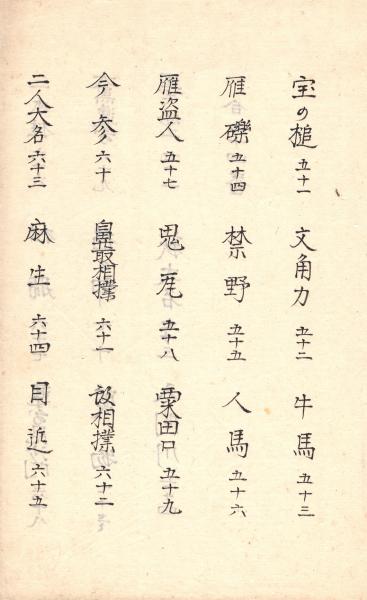 宝の槌 五十一 文角力 五十二 牛馬 五十三
雁礫 五十四 禁野 五十五 人馬 五十六
雁盗人 五十七 鬼瓦 五十八 粟田口 五十九
今参 六十 鼻取相撲 六十一 蚊相撲 六十二
二人大名 六十三 麻生 六十四 目近 六十五